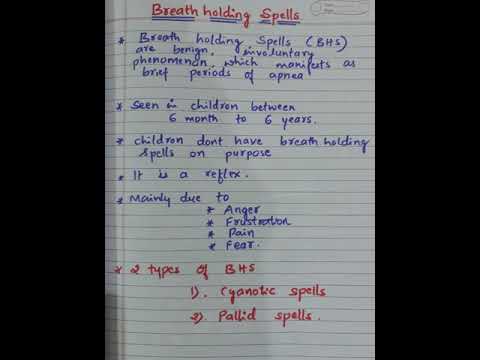 Breath holding Spells
* Breath holding Spells (BHS)
are benign, involuntary
phenomenon, which manifests as
brief periods of apnea
* Seen in children between
6 month to 6 years.
* children dont have breath holding
spells on purpose
* It is a reflex.
* Mainly due to
* Anger
* Frustration
* Pain
* Fear.
* 2 types of BHS
1). Cyanotic spells
2). Pallid spells.